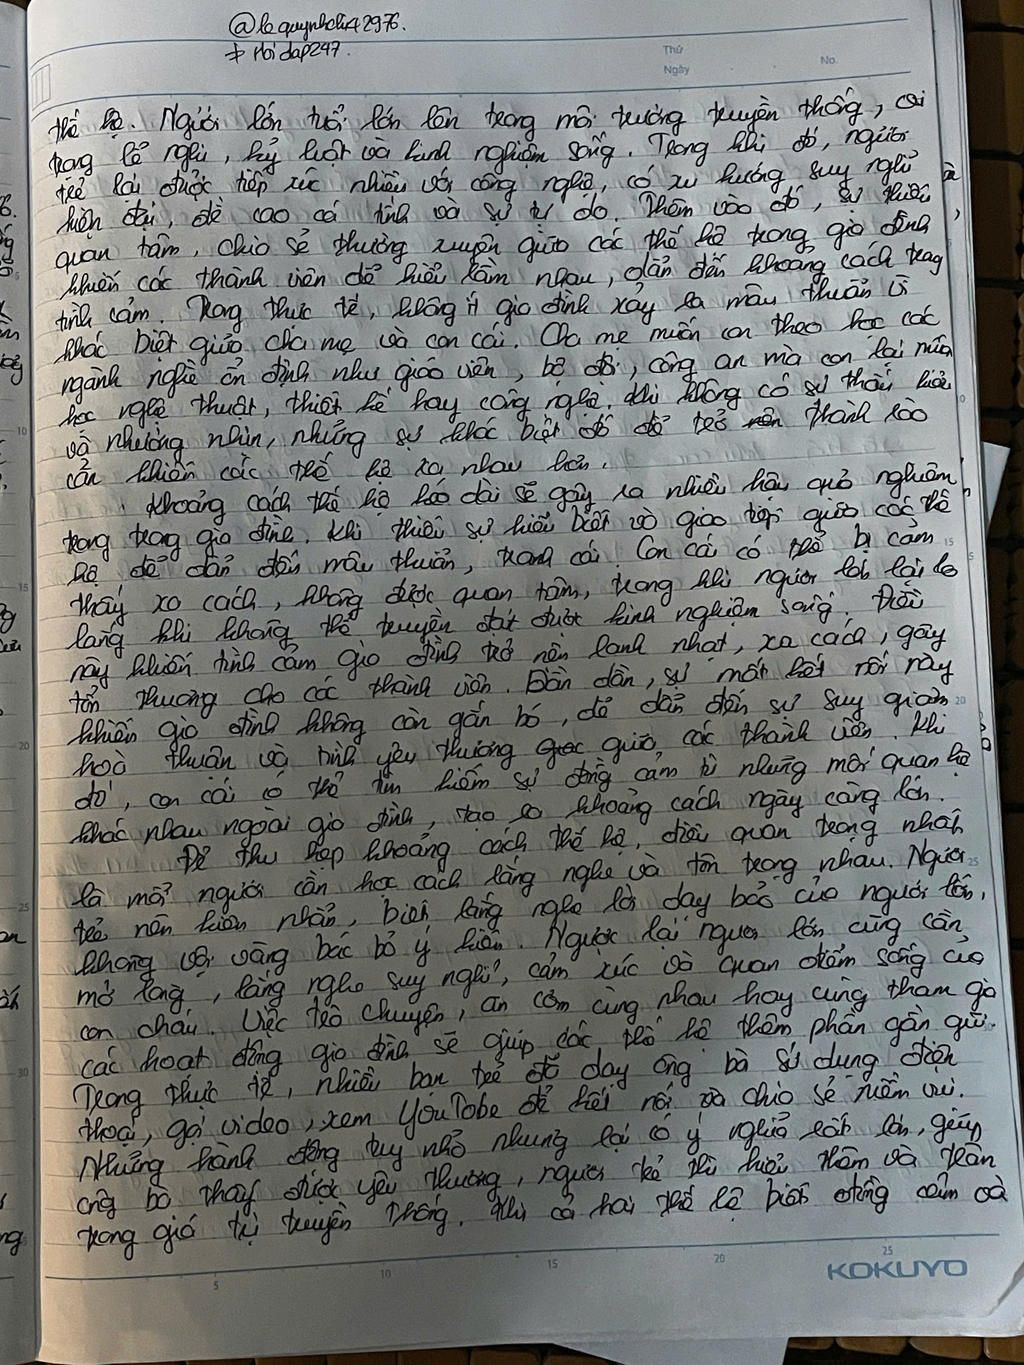 @lequynhchi42976.
+ Hoidap247.
Thứ
Ngày
No.
thế hệ. Người lớn tuổi lớn lên trong môi trường truyền thống, coi
trọng lễ nghi, kỷ luật và kinh nghiệm sống. Trong khi đó, người
trẻ lại được tiếp xúc nhiều với công nghệ, có xu hướng suy nghĩ
hiện đại, đề cao cá tính và sự tự do. Thêm vào đó, sự thiếu
quan tâm, chia sẻ thường xuyên giữa các thế hệ trong gia đình
khiến các thành viên dễ hiểu lầm nhau, dẫn đến khoảng cách trong
tình cảm. Trong thực tế, không ít gia đình xảy ra mâu thuẫn vì
khác biệt giữa cha mẹ và con cái. Cha mẹ muốn con theo học các
ngành nghề ổn định như giáo viên, bộ đội, công an mà con lại muốn
học nghệ thuật, thiết kế hay công nghệ. Khi không có sự thấu hiểu
và nhường nhịn, những sự khác biệt đó dễ trở nên thành rào
cản khiến các thế hệ xa nhau hơn.
Khoảng cách thế hệ kéo dài sẽ gây ra nhiều hậu quả nghiêm
trọng trong gia đình. Khi thiếu sự hiểu biết và giao tiếp giữa các thế
hệ dễ dẫn đến mâu thuẫn, tranh cãi. Con cái có thể bị cảm
thấy xa cách, không được quan tâm, trong khi người lớn lại lo
lắng khi không thể truyền đạt được kinh nghiệm sống. Điều
này khiến tình cảm gia đình trở nên lạnh nhạt, xa cách, gây
tổn thương cho các thành viên. Dần dần, sự mất kết nối này
khiến gia đình không còn gắn bó, dễ dẫn đến sự suy giảm
hoà thuận và tình yêu thương giữa các thành viên. Khi
đó, con cái có thể tìm kiếm sự đồng cảm từ những mối quan hệ
khác nhau ngoài gia đình, tạo ra khoảng cách ngày càng lớn.
Để thu hẹp khoảng cách thế hệ, điều quan trọng nhất
là mỗi người cần học cách lắng nghe và tôn trọng nhau. Người
trẻ nên kiên nhẫn, biết lắng nghe lời dạy bảo của người lớn,
không vội vàng bác bỏ ý kiến. Ngược lại người lớn cũng cần
mở lòng, lắng nghe suy nghĩ, cảm xúc và quan điểm sống của
con cháu. Việc trò chuyện, ăn cơm cùng nhau hay cùng tham gia
các hoạt động gia đình sẽ giúp các thế hệ thêm phần gần gũi.
Trong thực tế, nhiều bạn trẻ đã dạy ông bà sử dụng điện
thoại, gọi video, xem YouTobe để kết nối và chia sẻ niềm vui.
Những hành động tuy nhỏ nhưng lại có ý nghĩa rất lớn, giúp
ông bà thấy được yêu thương, người trẻ thì hiểu thêm và trân
trọng giá trị truyền thống. Khi cả hai thế hệ biết đồng cảm và
5
10
15
20
25
KOKUYO